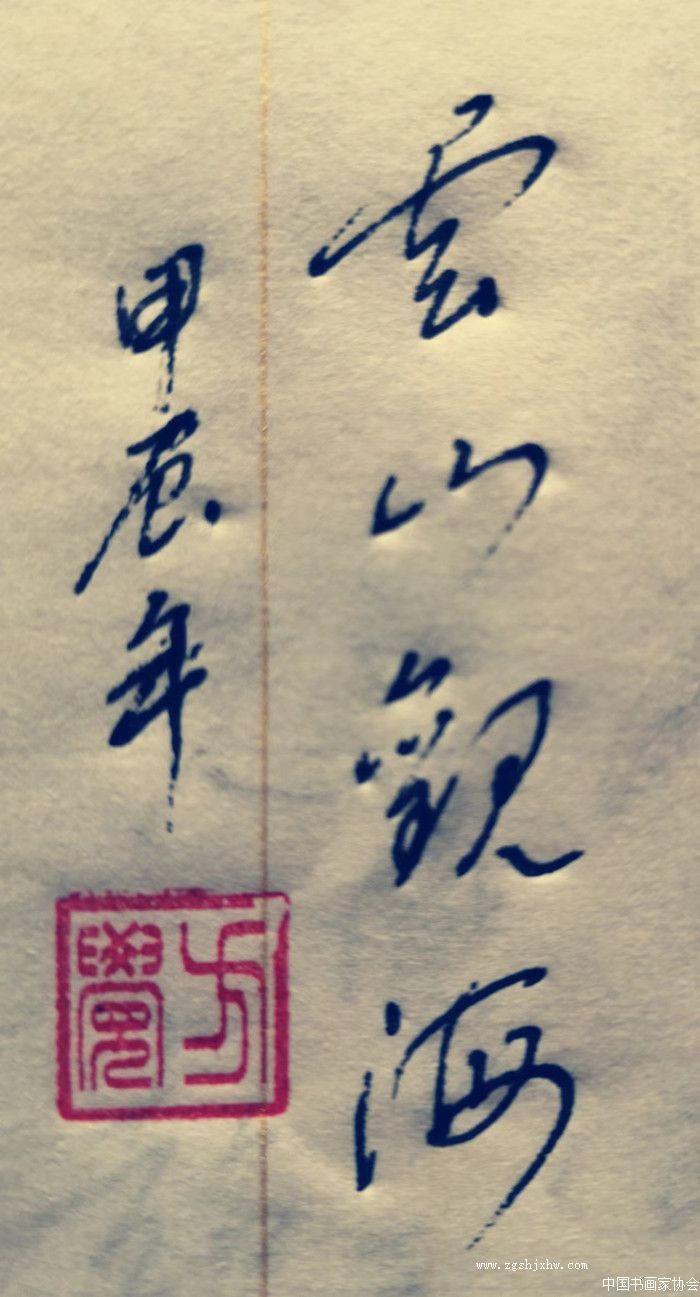 雲山觀海
甲辰年
www.zgshjxhw.com
中国书画家协会